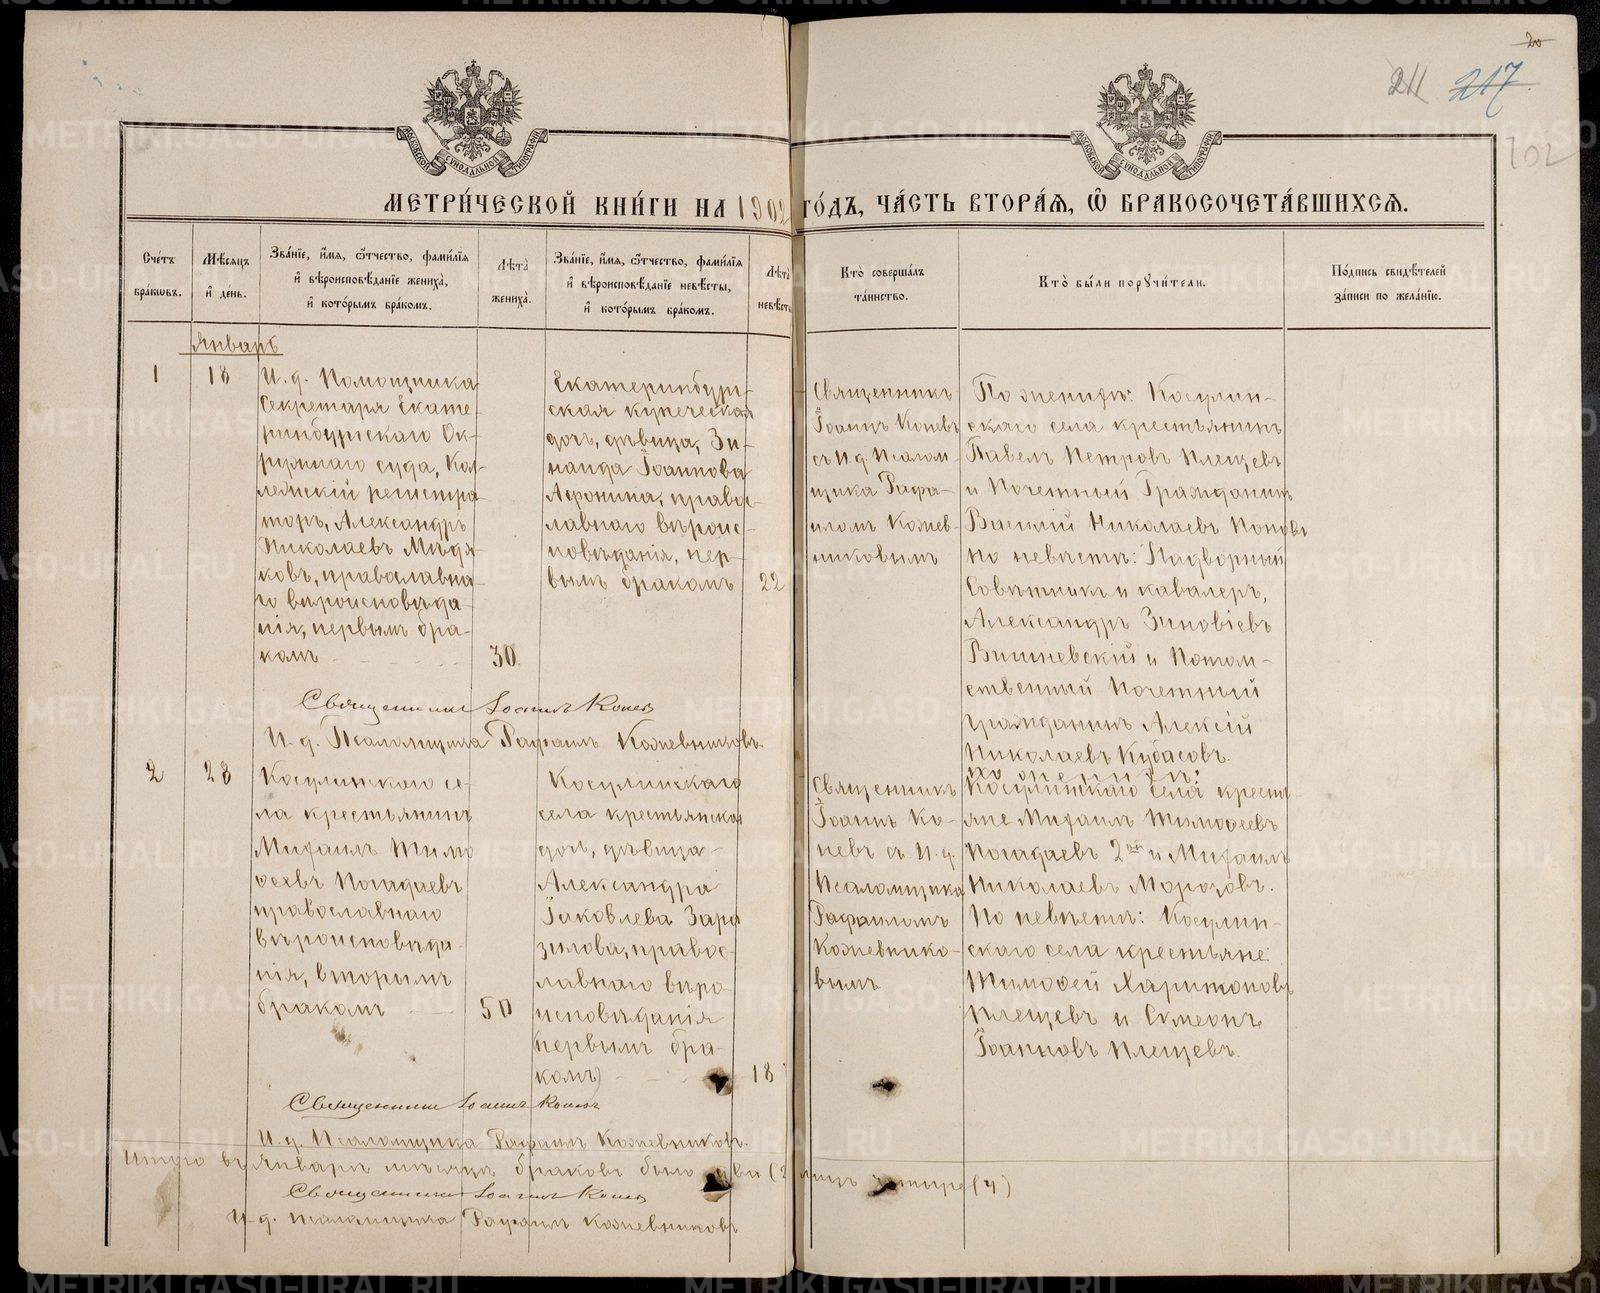 20
211 217
102
МОСКОВСКОЙ СѴНОДАЛЬНОЙ ТИПОГРАФІИ
МОСКОВСКОЙ СѴНОДАЛЬНОЙ ТИПОГРАФІИ
МЕТРИ́ЧЕСКОЙ КНИ́ГИ НА 1902 ГО́ДЪ, ЧА́СТЬ ВТОРА́Я, Ѽ БРАКОСОЧЕТА́ВШИХСЯ.
Сче́тъ
бра́кѡвъ.
Мѣ́сяцъ
и҆ де́нь.
Зва́нїе, и҆́мя, ѻ҆́тчество, фами́лїя
и҆ вѣроисповѣ́данїе жениха̀,
и҆ кото́рымъ бра́комъ.
Лѣ́та
жениха̀.
Зва́нїе, и҆́мя, ѻ҆́тчество, фами́лїя
и҆ вѣроисповѣ́данїе невѣ́сты,
и҆ кото́рымъ бра́комъ.
Лѣ́та
невѣ́сты
Кто̀ соверша́лъ
та́инство.
Кто̀ бы́ли порꙋчи́тели.
По́дпись свидѣ́телей
за́писи по жела́нїю.
Январь
1
18
И. д. Помощника
Секретаря Екате-
ринбургскаго Ок-
ружнаго суда, Кол-
лежскій регистра-
торъ, Александръ
Николаевъ Мѣдя-
ковъ, православна-
го вѣроисповѣда-
нія, первымъ бра-
комъ
30.
Екатеринбург-
ская купеческая
дочь, дѣвица, Зи-
наида Іоаннова
Афонина, правос-
лавнаго вѣроис-
повѣданія, пер-
вымъ бракомъ
22
Священникъ
Іоаннъ Коневъ
съ И. д. Псалом-
щика Рафа-
иломъ Кожев-
никовымъ
По женихѣ: Косулин-
скаго села крестьянинъ
Павелъ Петровъ Плещевъ
и Почетный Гражданинъ
Василій Николаевъ Поповъ
По невѣстѣ: Надворный
Совѣтникъ и кавалеръ,
Александръ Зиновіевъ
Вишневскій и Потом-
ственный Почетный
гражданинъ Алексій
Николаевъ Кубасовъ.
Священникъ Іоаннъ Коневъ
И. д. Псаломщика Рафаилъ Кожевниковъ.
2
28
Косулинскаго се-
ла крестьянинъ
Михаилъ Тимо-
ѳеевъ Погадаевъ
православнаго
вѣроисповѣда-
нія, вторымъ
бракомъ
50
Косулинскаго
села крестьянская
дочь, дѣвица
Александра
Іаковлева Зара-
зилова, правос-
лавнаго вѣро-
исповѣданія
первымъ бра-
комъ
18
Священникъ
Іоаннъ Ко-
невъ съ И. д.
Псаломщика
Рафаиломъ
Кожевнико-
вымъ
по женихѣ:
Косулинскаго села кресть-
яне Михаилъ Тимоѳеевъ
Погадаевъ 2ой и Михаилъ
Николаевъ Морозовъ.
По невѣстѣ: Косулин-
скаго села крестьяне:
Тимоѳей Харитоновъ
Плещевъ и Симеонъ
Іоанновъ Плещевъ.
Священникъ Іоаннъ Коневъ
И. д. Псаломщика Рафаилъ Кожевниковъ.
Итого въ Январѣ мѣсяцѣ браковъ было два (2) лицъ четыре (4)
Священникъ Іоаннъ Коневъ
И. д. псаломщика Рафаилъ Кожевниковъ
METRIKI.GASO-URAL.RU